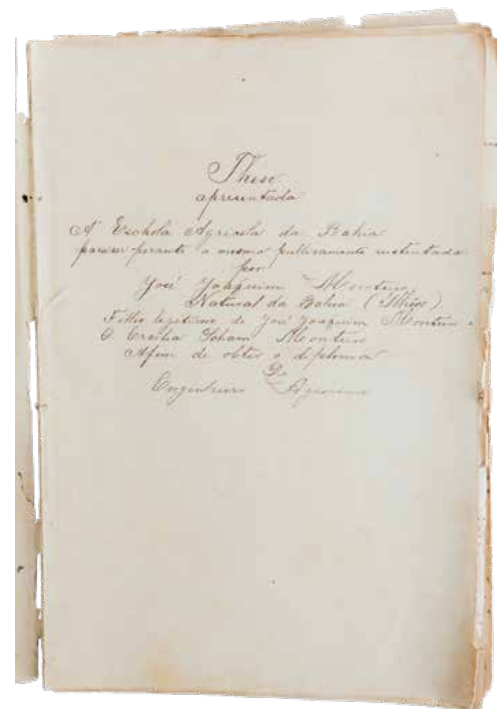 These
apresentada
A Eschola Agricola da Bahia
para ser perante a mesma publicamente sustentada
por
José Joaquim Monteiro
Natural da Bahia (Ilhéos)
Filho legitimo de José Joaquim Monteiro e
D. Ercilia Monteiro
Afim de obter o diploma
De
Engenheiro Agronomo